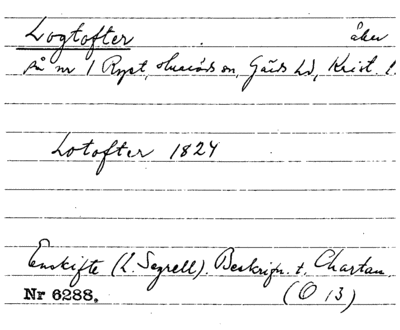 Logtofter åker
på nr 1 Ryet, Husiöds sn, Gärds hd, Krist. l.
Lotofter 1824
Enskifte (L. Segrell). Beskrifn. t. Chartan
Nr 6288. (O 13)